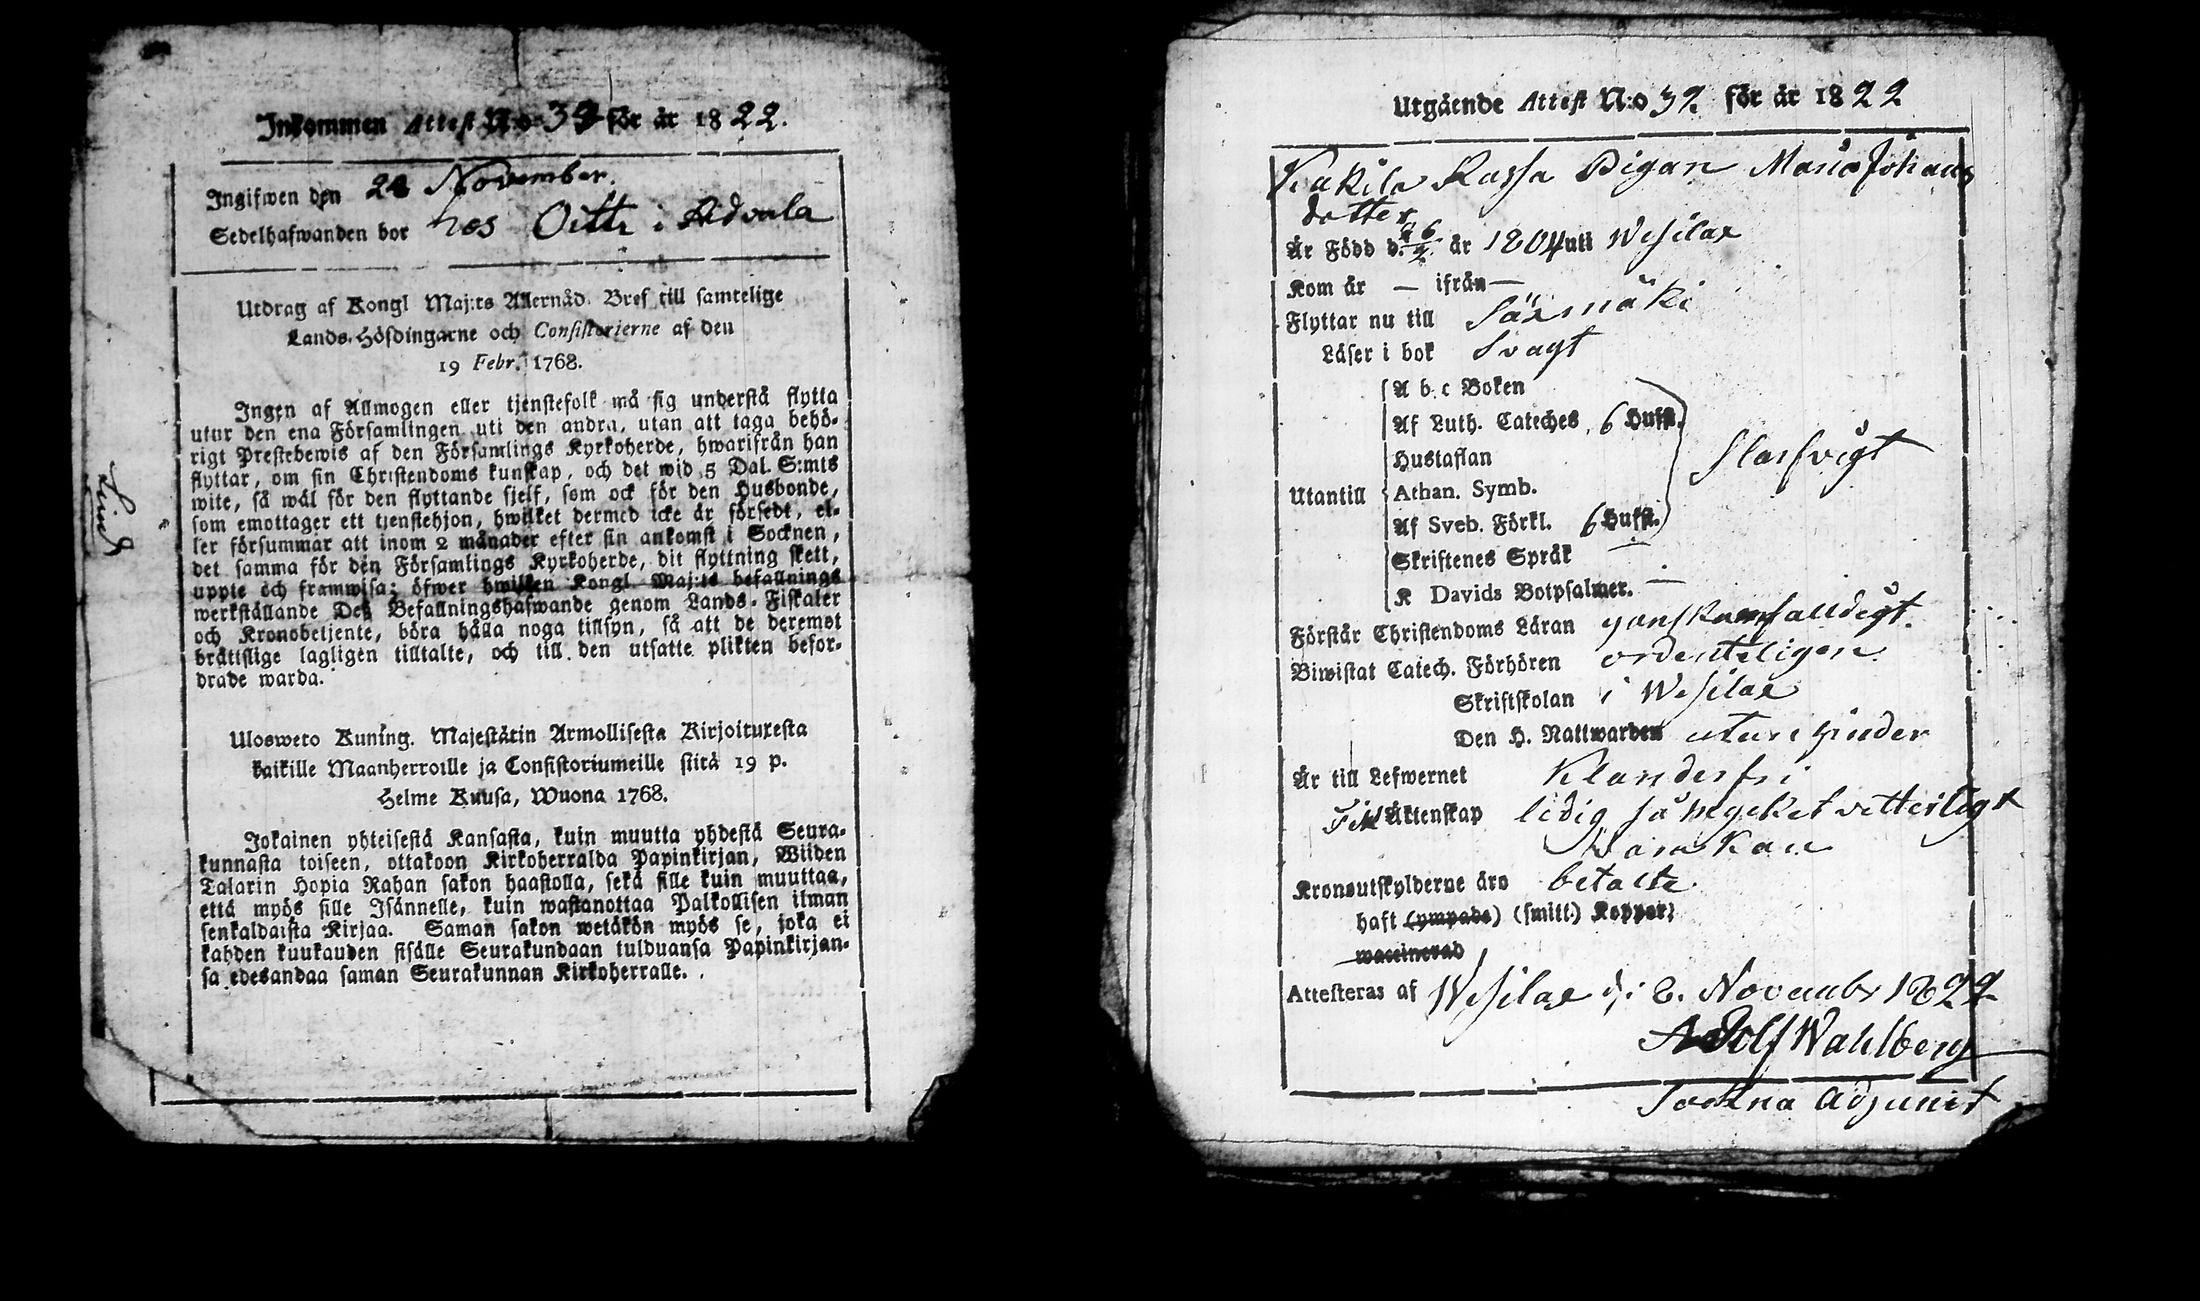 Inkommen Attest N:o 32 för år 1822.
Ingifwen den 24 November.
Sedelhafwanden bor hos Oitti i
Utdrag af Kongl Maj:ts Allernåd. Bref till samtelige
Lands-Höfdingarne och Consistorierne af den
19 Febr. 1768.
Ingen af Allmogen eller tjenstefolk må sig understå flytta
utur den ena Församlingen uti den andra, utan att taga behö-
rigt Prestebewis af den Församlings Kyrkoherde, hwarifrån han
flyttar, om sin Christendoms kunskap, och det wid 5 Dal. S:mts
wite, så wäl för den flyttande sjelf, som ock för den Husbonde,
som emottager ett tjenstehjon, hwilket dermed icke är försedt, el-
ler försummar att inom 2 månader efter sin ankomst i Socknen,
det samma för den Församlings Kyrkoherde, dit flyttning skett,
uppte och framwisa; öfwer hwilken Kongl Maj:ts befallnings
werkställande Des Befallningshafwande genom Lands-Fiskaler
och Kronobetjente, böra hålla noga tillsyn, så att de deremot
bråttslige lagligen tilltalte, och till den utsatte plikten befor-
drade warda.
Ulosweto Kuning. Majestätin Armollisesta Kirjoituxesta
kaikille Maanherroille ja Consistoriumeille siitä 19 p.
Helme Kuusa, Wuona 1768.
Jokainen yhteisestä Kansasta, kuin muutta yhdestä Seura-
kunnasta toiseen, ottakoon Kirkoherralda Papinkirjan, Wiiden
Talarin Hopia Rahan sakon haastolla, sekä sille kuin muuttaa,
että myös sille Isännelle, kuin wastanottaa Palkollisen ilman
senkaldaista Kirjaa. Saman sakon wetäkön myös se, joka ei
kahden kuukauden sisälle Seurakundaan tulduansa Papinkirjan-
sa edesandaa saman Seurakunnan Kirkoherralle.
Lind
Utgående Attest N:o 32 för år 1822
Kukila Kussa Pigan Maria Johans
dotter
Är Född d. 26/2 år 1804 uti Wesilax
Kom år — ifrån —
Flyttar nu till Säxmäki
Läser i bok Svagt
A b c Boken
Af Luth. Cateches, 6 Hufst.
Hustaflan
Utantill Athan. Symb. Slarfvigt
Af Sveb. Förkl. 6 Hufst.
Skriftenes Språk —
K Davids Botpsalmer. —
Förstår Christendoms Läran ganska enfalldigt.
Biwistat Catech. Förhören ordenteligen.
Skriftskolan i Wesilax
Den H. Nattwarden utan hinder
Är till Lefwernet Klanderfri
Till Äktenskap ledig så mycket vetterligt
vara kan
Kronoutskylderne äro betalte
haft (ympade) (smitt.) Koppor;
waccinerad
Attesteras af Wesilax d. 8. November 1822
Adolf Wahlberg
Sockne Adjunct